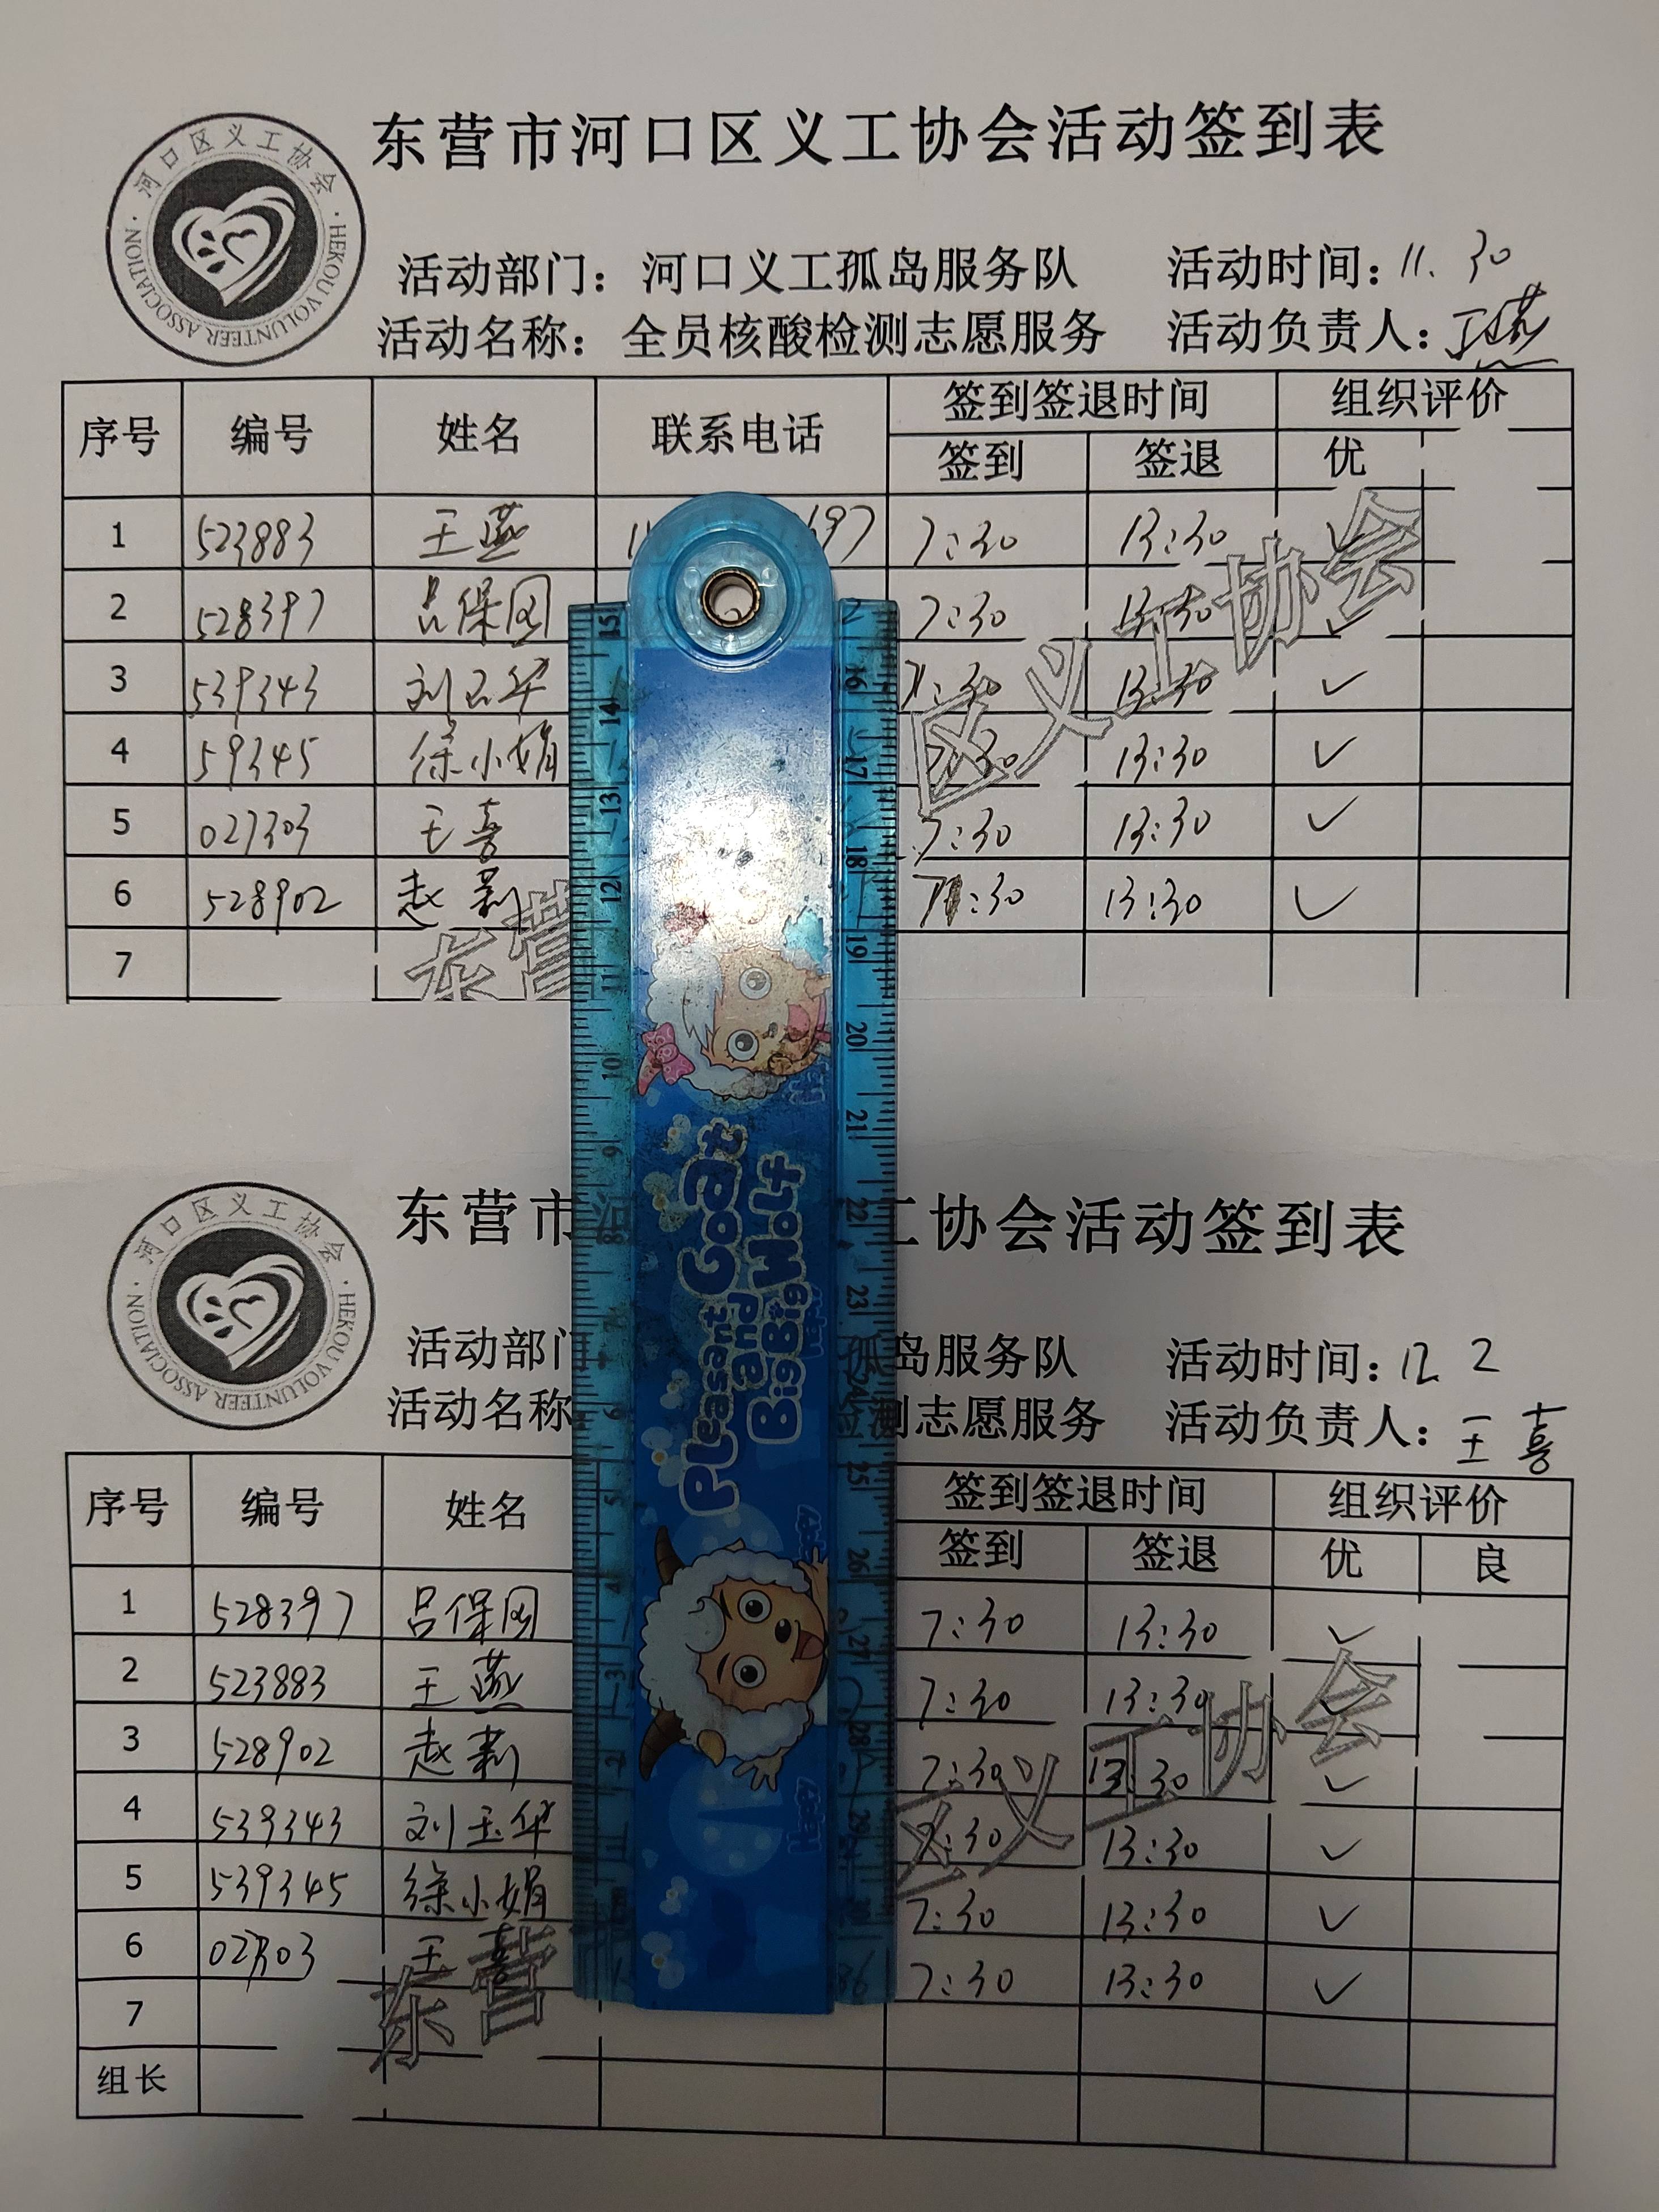 东营市河口区义工协会活动签到表
河口区义工协会
HEKOU VOLUNTEER ASSOCIATION
活动部门：河口义工孤岛服务队 活动时间：11.30
活动名称：全员核酸检测志愿服务 活动负责人：王燕
序号 编号 姓名 联系电话 签到签退时间 组织评价
签到 签退 优
1 523883 王燕 697 7:30 13:30 ✓
2 528397 吕保国 7:30 13:30 ✓
3 539343 刘玉华 7:30 13:30 ✓
4 59345 徐小娟 7:30 13:30 ✓
5 027303 王喜 7:30 13:30 ✓
6 528902 赵莉 7:30 13:30 ✓
7
东营 区义工协会
东营市 工协会活动签到表
河口区义工协会
HEKOU VOLUNTEER ASSOCIATION
活动部门 岛服务队 活动时间：12 2
活动名称 测志愿服务 活动负责人：王喜
序号 编号 姓名 签到签退时间 组织评价
签到 签退 优 良
1 528397 吕保国 7:30 13:30 ✓
2 523883 王燕 7:30 13:30 ✓
3 528902 赵莉 7:30 13:30 ✓
4 539343 刘玉华 7:30 13:30 ✓
5 539345 徐小娟 7:30 13:30 ✓
6 027303 王喜 7:30 13:30 ✓
7
组长
东营 区义工协会
Pleasant Goat
and
Big Big Wolf
Happy
Happy
15 14 13 12 11 10 9 8 7 6 5 4 3 2 1
16 17 18 19 20 21 22 23 25 26 27 28 29